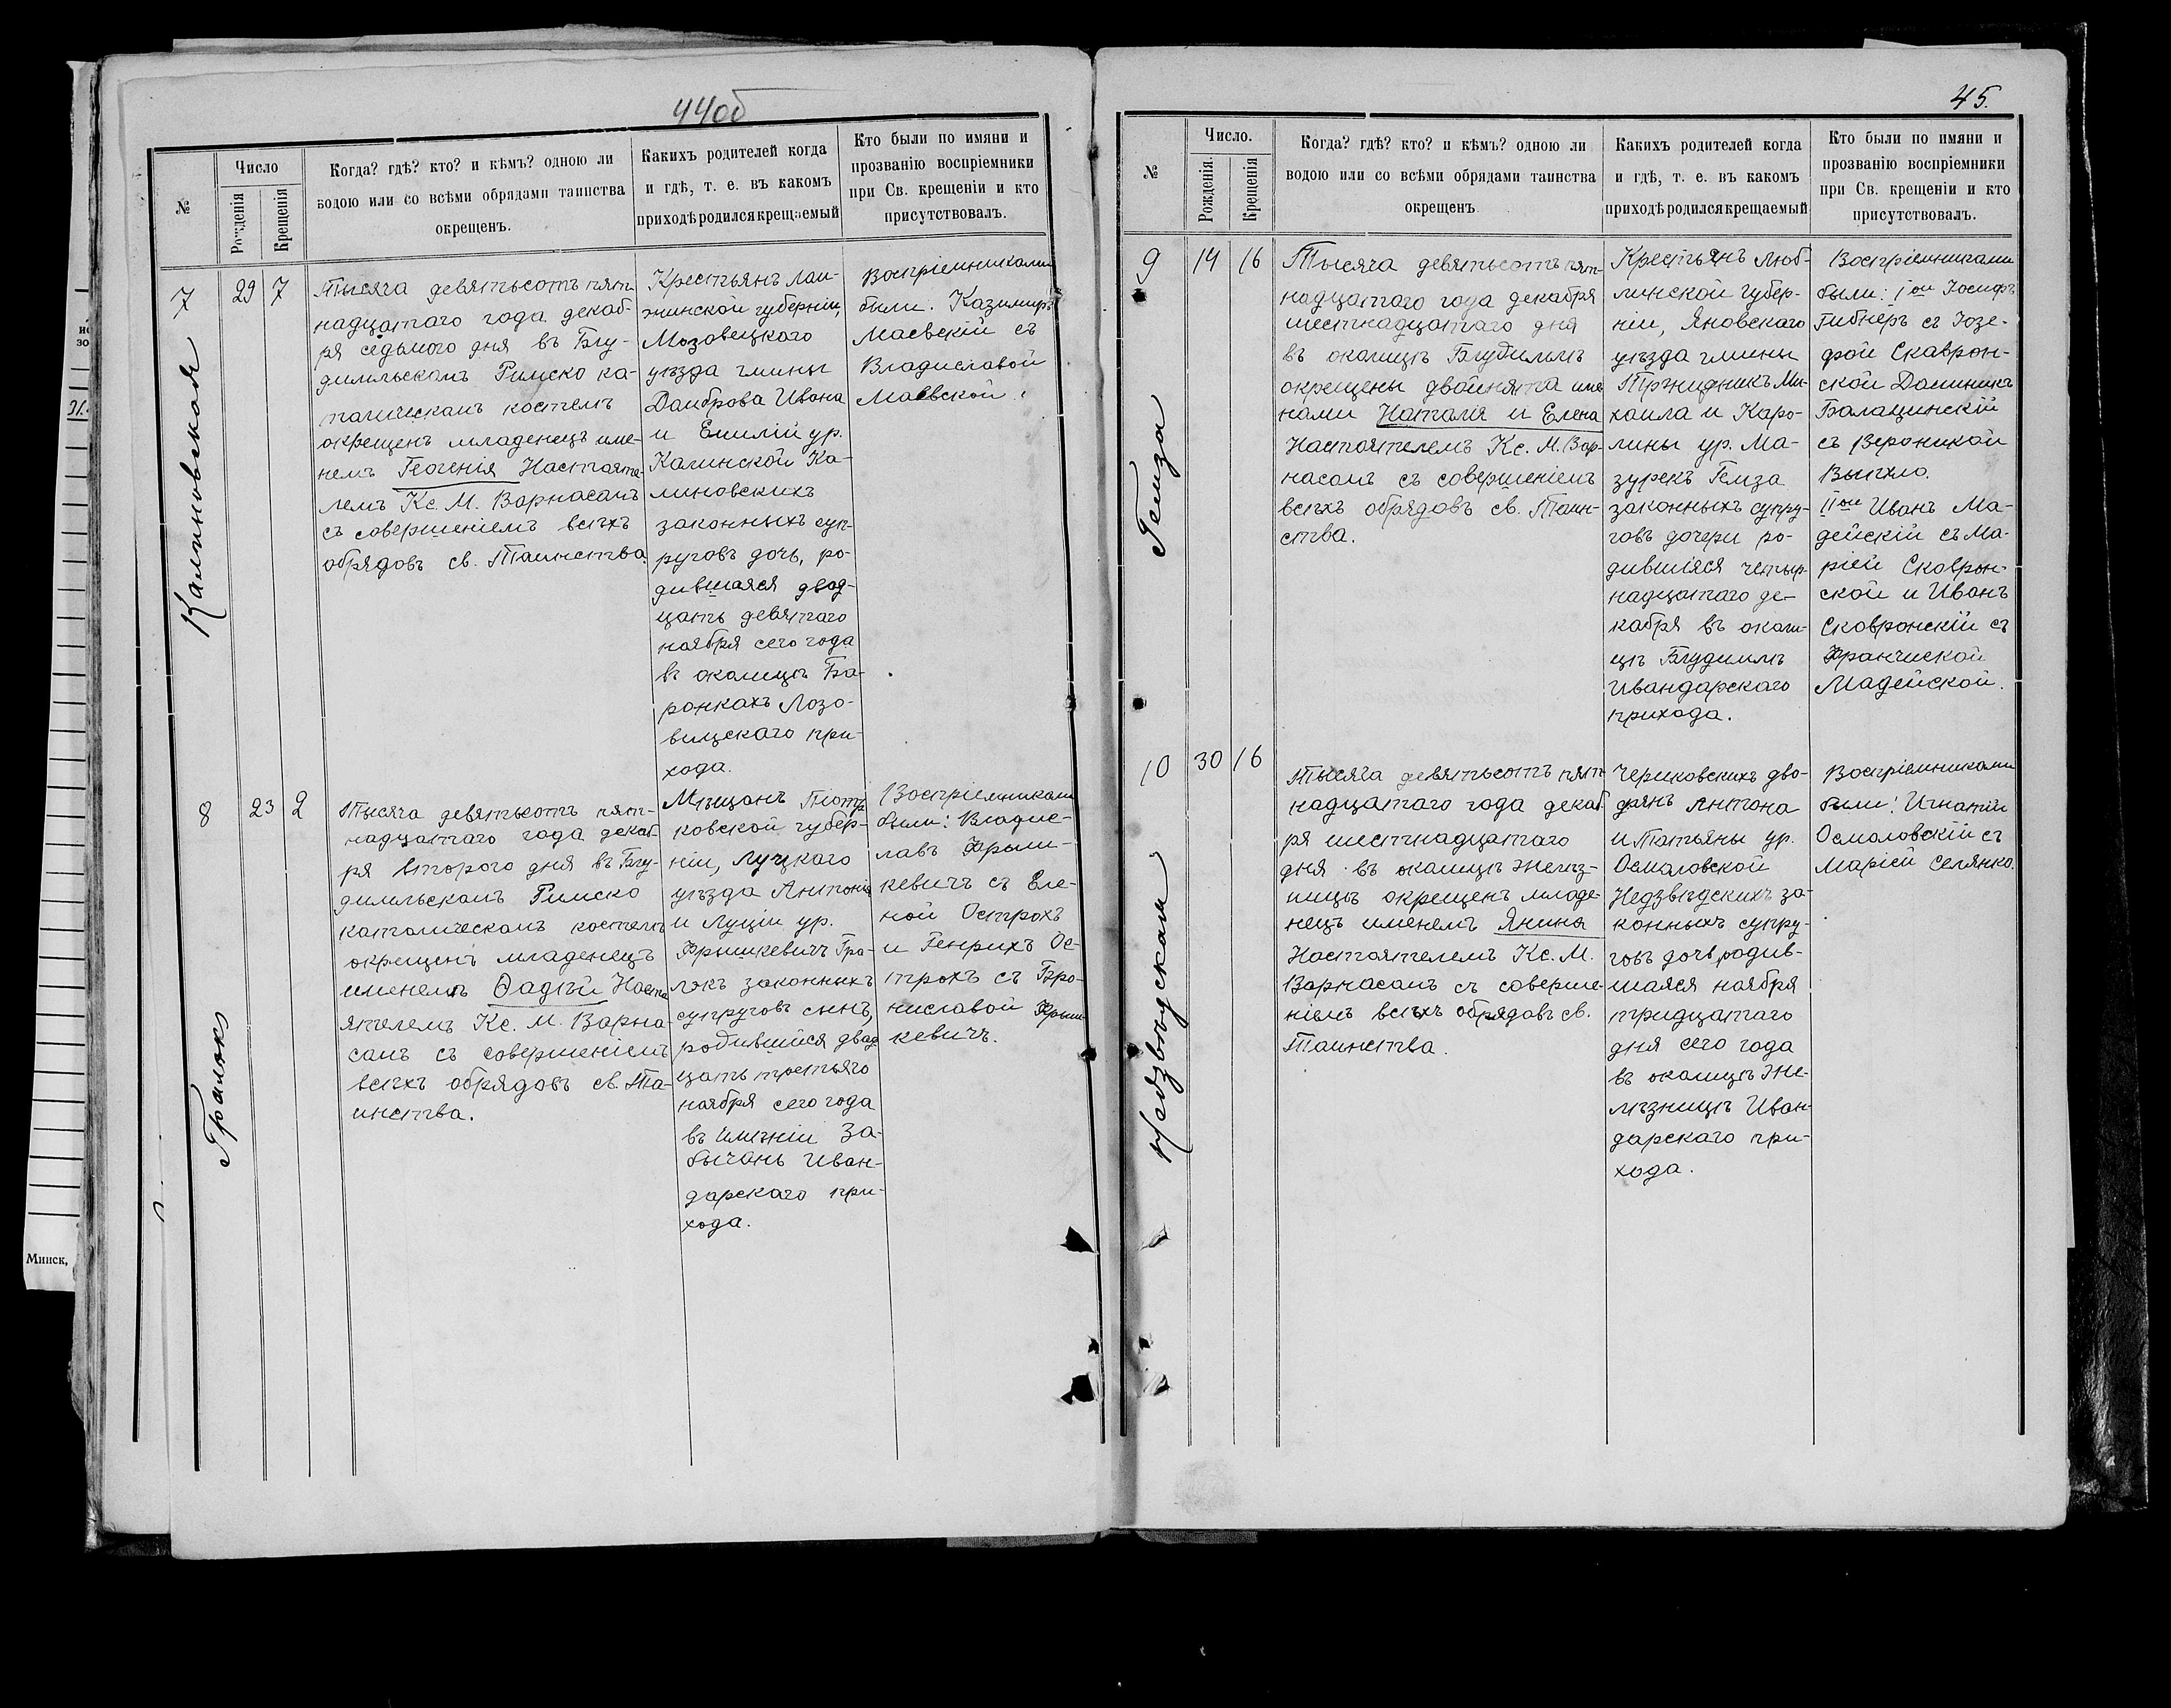 44об
№
Число
Рожденія
Крещенія
Когда? гдѣ? кто? и кѣмъ? одною ли
водою или со всѣми обрядами таинства
окрещенъ.
Какихъ родителей когда
и гдѣ, т. е. въ какомъ
приходѣ родился крещаемый
Кто были по имяни и
прозванію воспріемники
при Св. крещеніи и кто
присутствовалъ.
7
Калиновская
29
7
Тысяча девятьсотъ пят-
надцатаго года декаб-
ря седьмого дня въ Блу-
димльскомъ Римско ка-
толическомъ костелѣ
окрещенъ младенецъ име-
немъ Геогенія Настояте
лемъ Кс. М. Варнасомъ
съ совершеніемъ всѣхъ
обрядовъ св. Таинства.
Крестьянъ Лом-
жинской губерніи,
Мазовецкаго
уѣзда гмины
Домброва Ивана
и Емиліи ур.
Калинской Ка-
линовскихъ
законныхъ суп-
руговъ дочь, ро-
дившаяся двад-
цать девятаго
ноября сего года
въ околицѣ Ба-
ронкахъ Лозо-
вицскаго при-
хода.
Воспріемниками
были. Казимиръ
Маевскій съ
Владиславой
Маевской.
8
Гралокъ
23
2
Тысяча девятьсотъ пят-
надцатаго года декаб-
ря второго дня въ Блу-
димльскомъ Римско
католическомъ костелѣ
окрещенъ младенецъ
именемъ Ѳадѣй Насто
ятелемъ Кс. М. Варна-
сомъ съ совершеніемъ
всѣхъ обрядовъ св. Та-
инства.
Мѣщанъ Піотр
ковской губер-
ніи, Луцкаго
уѣзда Антонія
и Луціи ур.
Фрышкевичъ Гра-
локъ законныхъ
супруговъ сынъ,
родившійся двад
цать третьяго
ноября сего года
въ имѣніи За-
бычань Иван-
дарскаго при-
хода.
Воспріемниками
были: Владис-
лавъ Фрыш-
кевичъ съ Еле-
ной Острохъ
и Генрихъ Ос-
трохъ съ Бро-
ниславой Фрыш
кевичъ.
45.
№
Число.
Рожденія.
Крещенія
Когда? гдѣ? кто? и кѣмъ? одною ли
водою или со всѣми обрядами таинства
окрещенъ
Какихъ родителей когда
и гдѣ, т. е. въ какомъ
приходѣ родился крещаемый
Кто были по имяни и
прозванію воспріемники
при Св. крещеніи и кто
присутствовалъ.
9
Гемза
14
16
Тысяча девятьсотъ пят-
надцатаго года декабря
шестнадцатаго дня
въ околицѣ Блудимлѣ
окрещены двойнята име
нами Наталія и Елена
Настоятелемъ Кс. М. Вар-
насомъ съ совершеніемъ
всѣхъ обрядовъ св. Таин-
ства.
Крестьянъ Люб-
линской губер-
ніи, Яновскаго
уѣзда гмины
Тржидникъ Ми-
хаила и Каро-
лины ур. Ма-
зурекъ Гемза
законныхъ супру-
говъ дочери ро-
дившіяся четыр
надцатаго де-
кабря въ околи-
цѣ Блудимлѣ
Ивандарскаго
прихода.
Воспріемниками
были: I ой Іосифъ
Гибнеръ съ Юзе-
фой Скаврон-
ской Доминикъ
Балащинскій
съ Вероникой
Выпхло.
II ой Иванъ Ма-
дейскій съ Ма-
ріей Скаврон-
ской и Иванъ
Сковронскій съ
Франчиской
Мадейской.
10
Недзвѣдская
30
16
Тысяча девятьсотъ пят
надцатаго года декаб
ря шестнадцатаго
дня въ околицѣ Желѣз-
ницѣ окрещенъ младе-
нецъ именемъ Янина
Настоятелемъ Кс. М.
Варнасомъ съ соверше-
ніемъ всѣхъ обрядовъ св.
Таинства.
Чериковскихъ дво-
рянъ Антона
и Татьяны ур.
Осмоловской
Недзвѣдскихъ за-
конныхъ супру-
говъ дочь родив-
шаяся ноября
тридцатаго
дня сего года
въ околицѣ Же-
лѣзницѣ Иван-
дарскаго при-
хода.
Воспріемниками
были: Игнатій
Осмоловскій съ
Маріей Селянко.
Минск,